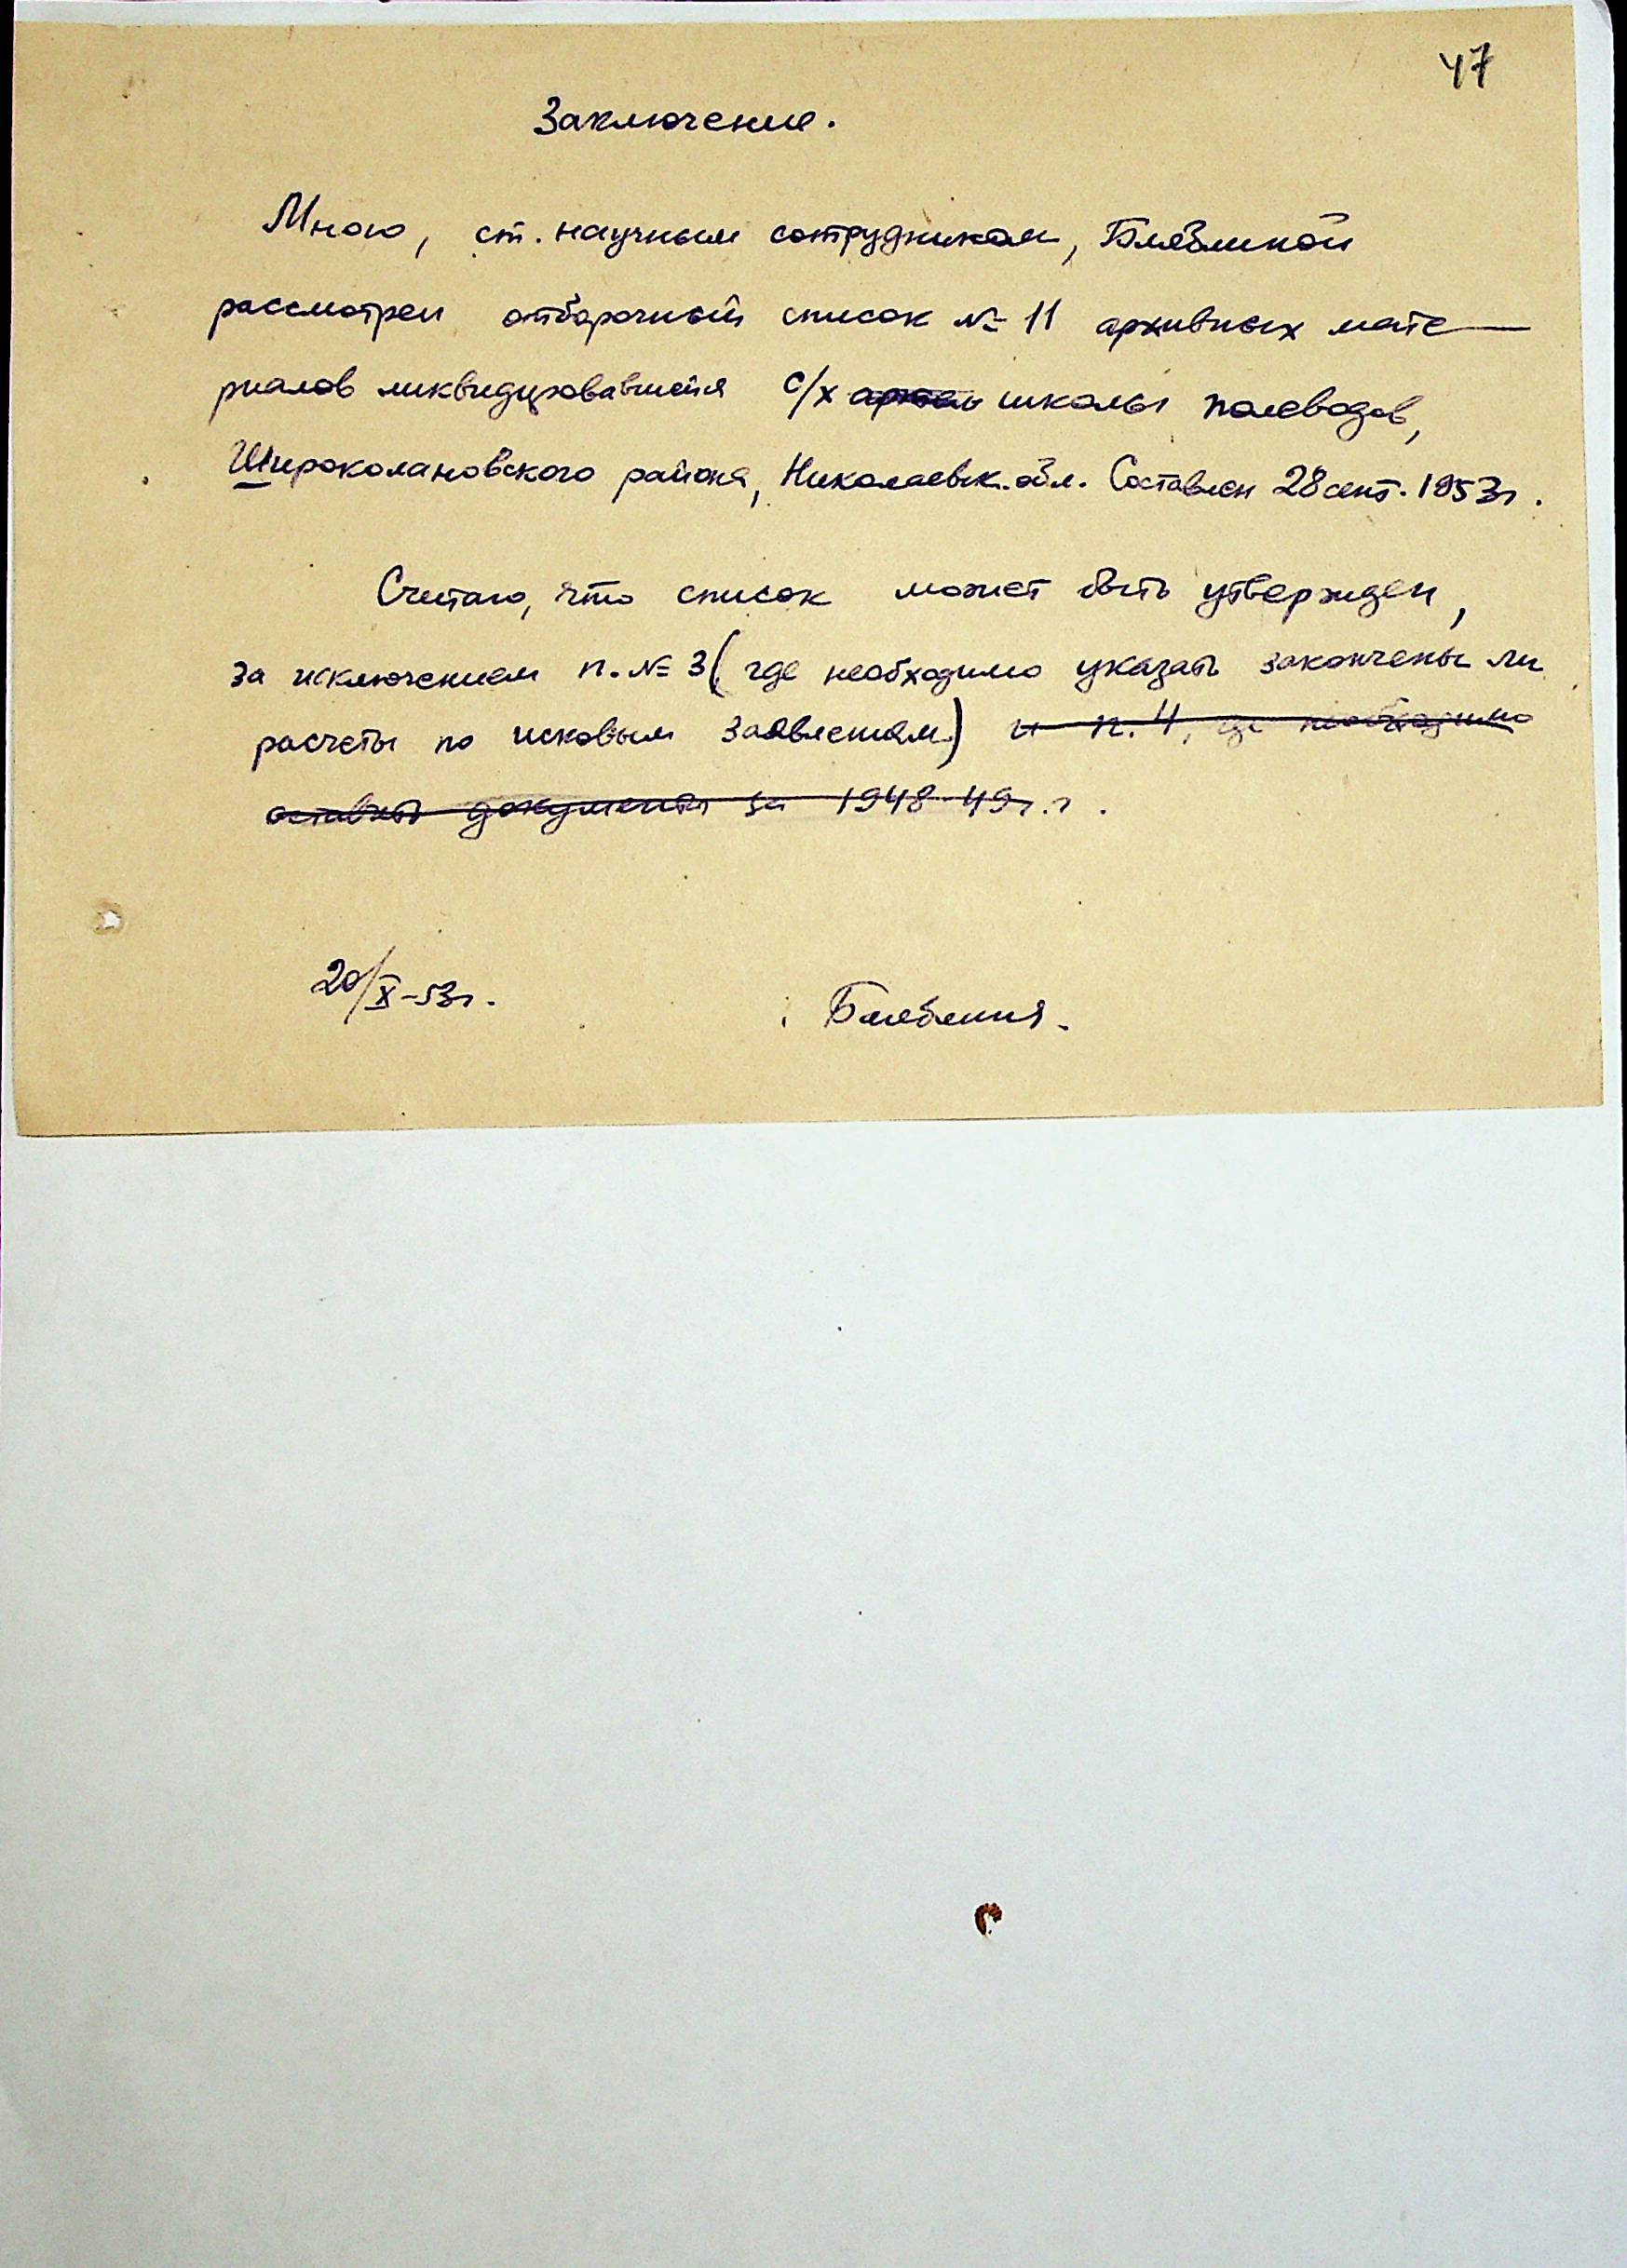 47
Заключение.
Мною, ст. научным сотрудником,
рассмотрен отборочный список № 11 архивных мате-
риалов ликвидировавшейся с/х артель школы полеводов,
Широколановского района, Николаевск. обл. Составлен 28 сент. 1953г.
Считаю, что список может быть утвержден,
за исключением п. № 3 (где необходимо указать закончены ли
расчеты по исковым заявлениям) и п. 4, где необходимо
оставить документы за 1948-49г.г.
20/X-53г.